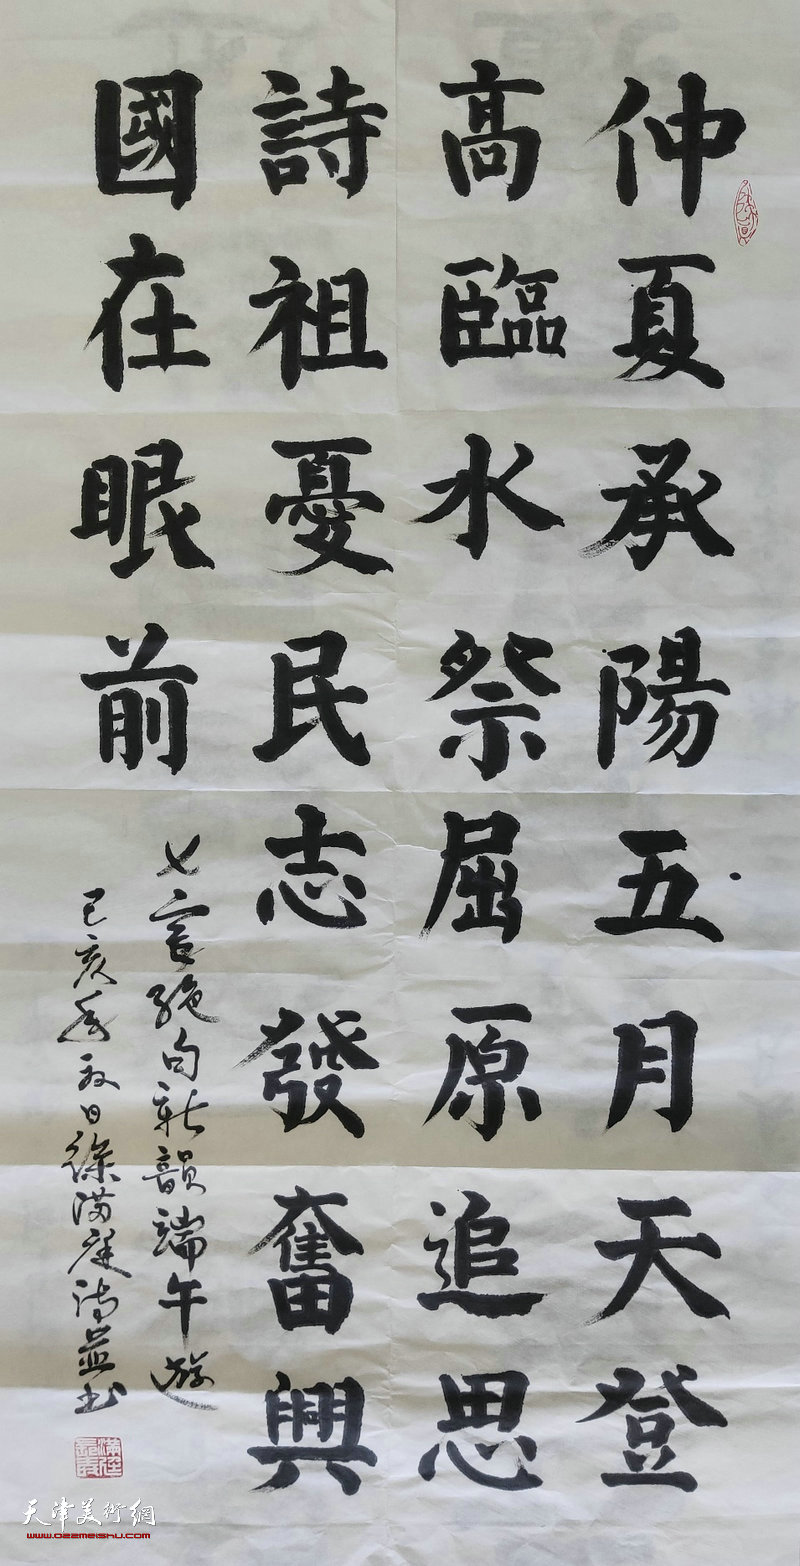 仲夏承陽五月天登
高臨水祭屈原追思
詩祖憂民志發奮興
國在眼前
七言絶句新韻端午遊
己亥年秋日徐滿庭詩並书
天津美術網
www.022meishu.com